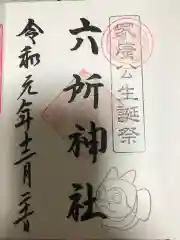 家康公生誕祭
六所神社
令和元年十二月二十六日